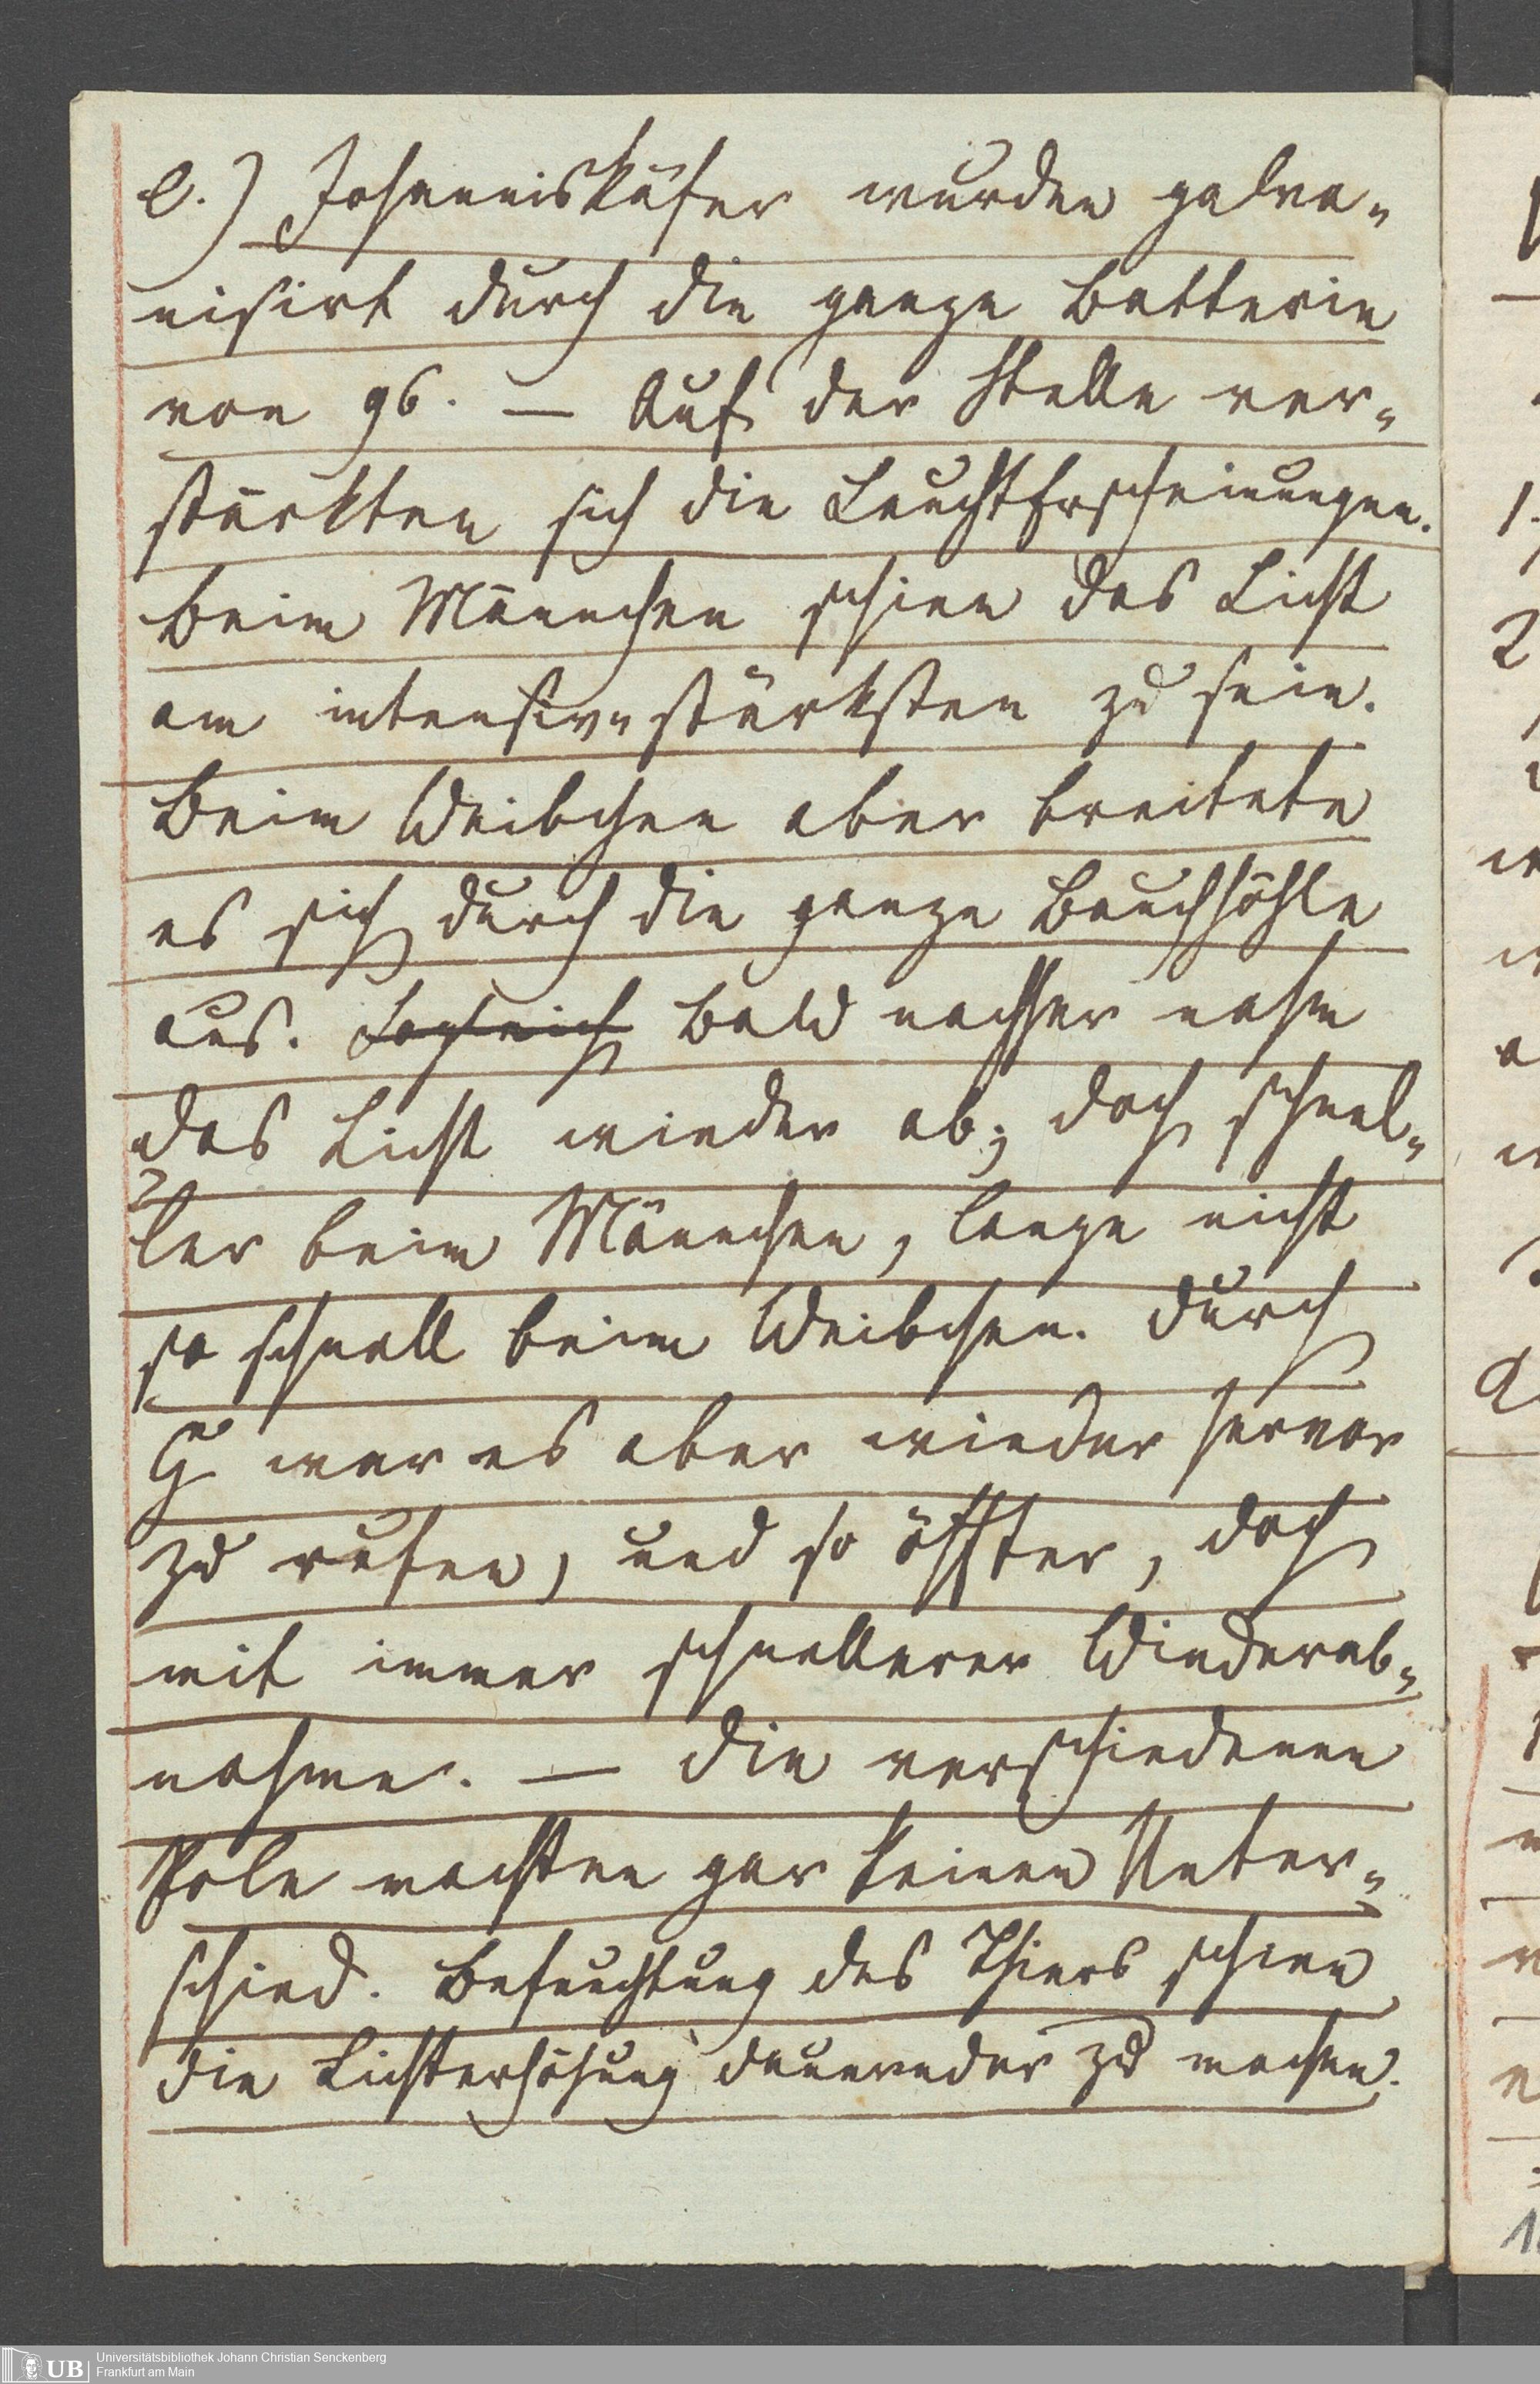 e.) Johanniskäfer wurden galva-
nisirt durch die ganze Batterie
von 96. — Auf der Stelle ver-
stärkten sich die LeuchtErscheinungen.
Beim Männchen schien das Licht
am intensiv-stärksten zu sein.
Beim Weibchen aber breitete
es sich durch die ganze Bauchhöhle
aus. Sogleich Bald nachher nahm
das Licht wieder ab; doch schnel-
ler beim Männchen, lange nicht
so schnell beim Weibchen. Durch
G war es aber wieder hervor
zu rufen, und so öffter, doch
mit immer schnellerer Wiederab-
nahme. — Die verschiedenen
Pole machten gar keinen Unter-
schied. Befeuchtung des Thiers schien
die Lichterhöhung dauernder zu machen.
UB
Universitätsbibliothek Johann Christian Senckenberg
Frankfurt am Main